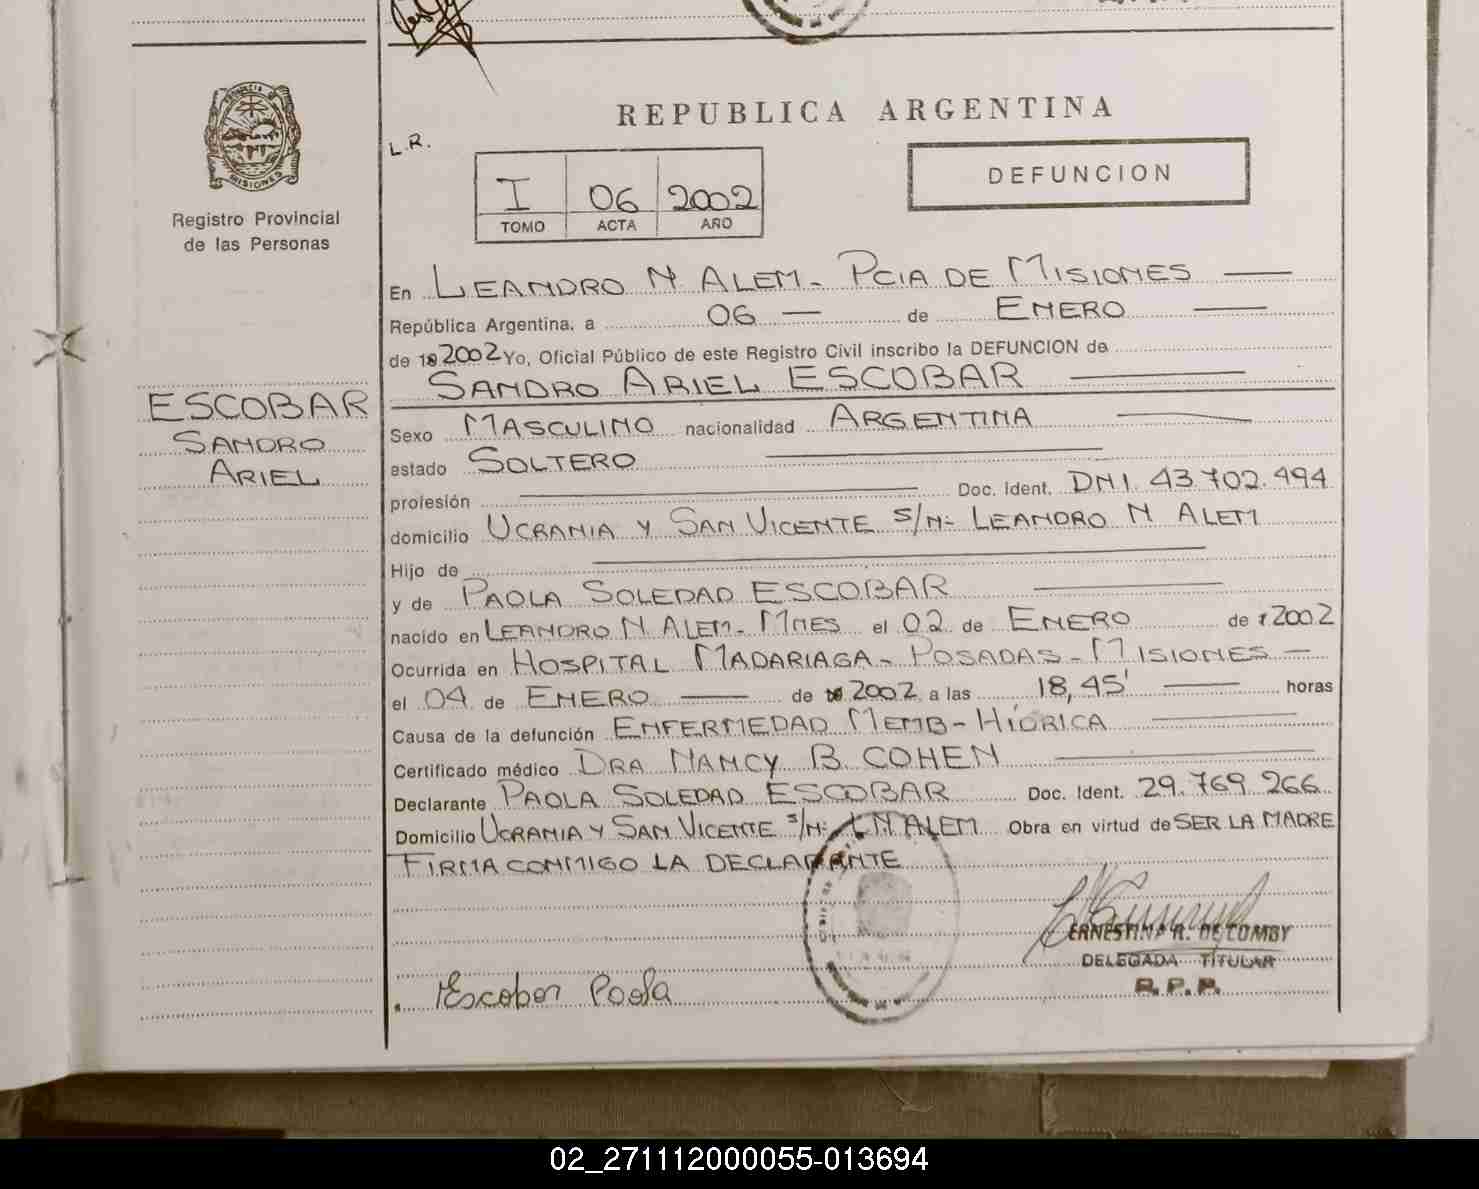 REPUBLICA ARGENTINA
L.R.
I 06 2002
TOMO ACTA AÑO
DEFUNCION
PROVINCIA DE
MISIONES
Registro Provincial
de las Personas
ESCOBAR
SANDRO
ARIEL
En LEANDRO N ALEM - PCIA DE MISIONES
República Argentina, a 06 de ENERO
de 2002 Yo, Oficial Público de este Registro Civil inscribo la DEFUNCION de
SANDRO ARIEL ESCOBAR
Sexo MASCULINO nacionalidad ARGENTINA
estado SOLTERO
profesión Doc. Ident. DNI. 43.702.494
domicilio UCRANIA Y SAN VICENTE S/N- LEANDRO N ALEM
Hijo de
y de PAOLA SOLEDAD ESCOBAR
nacido en LEANDRO N. ALEM - MNES el 02 de ENERO de 2002
Ocurrida en HOSPITAL MADARIAGA - POSADAS - MISIONES
el 04 de ENERO de 2002 a las 18,45' horas
Causa de la defunción ENFERMEDAD MEMB-HIDRICA
Certificado médico DRA NANCY B. COHEN
Declarante PAOLA SOLEDAD ESCOBAR Doc. Ident. 29.769.266
Domicilio UCRANIA Y SAN VICENTE S/N- L N ALEM Obra en virtud de SER LA MADRE
FIRMA CONMIGO LA DECLARANTE
ERNESTINA R. DE COMBY
DELEGADA TITULAR
R.P.P.
Escobar Paola
02_271112000055-013694